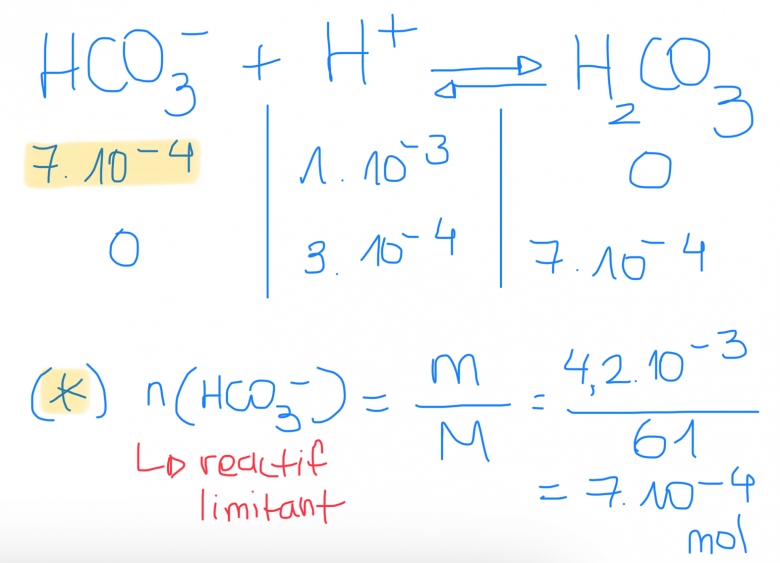 HCO₃⁻ + H⁺ ⇌ H₂CO₃
7.10⁻⁴ | 1.10⁻³ | 0
0 | 3.10⁻⁴ | 7.10⁻⁴
(*) n(HCO₃⁻) = m/M = 4,2.10⁻³/61
↳ reactif
limitant
= 7.10⁻⁴
mol